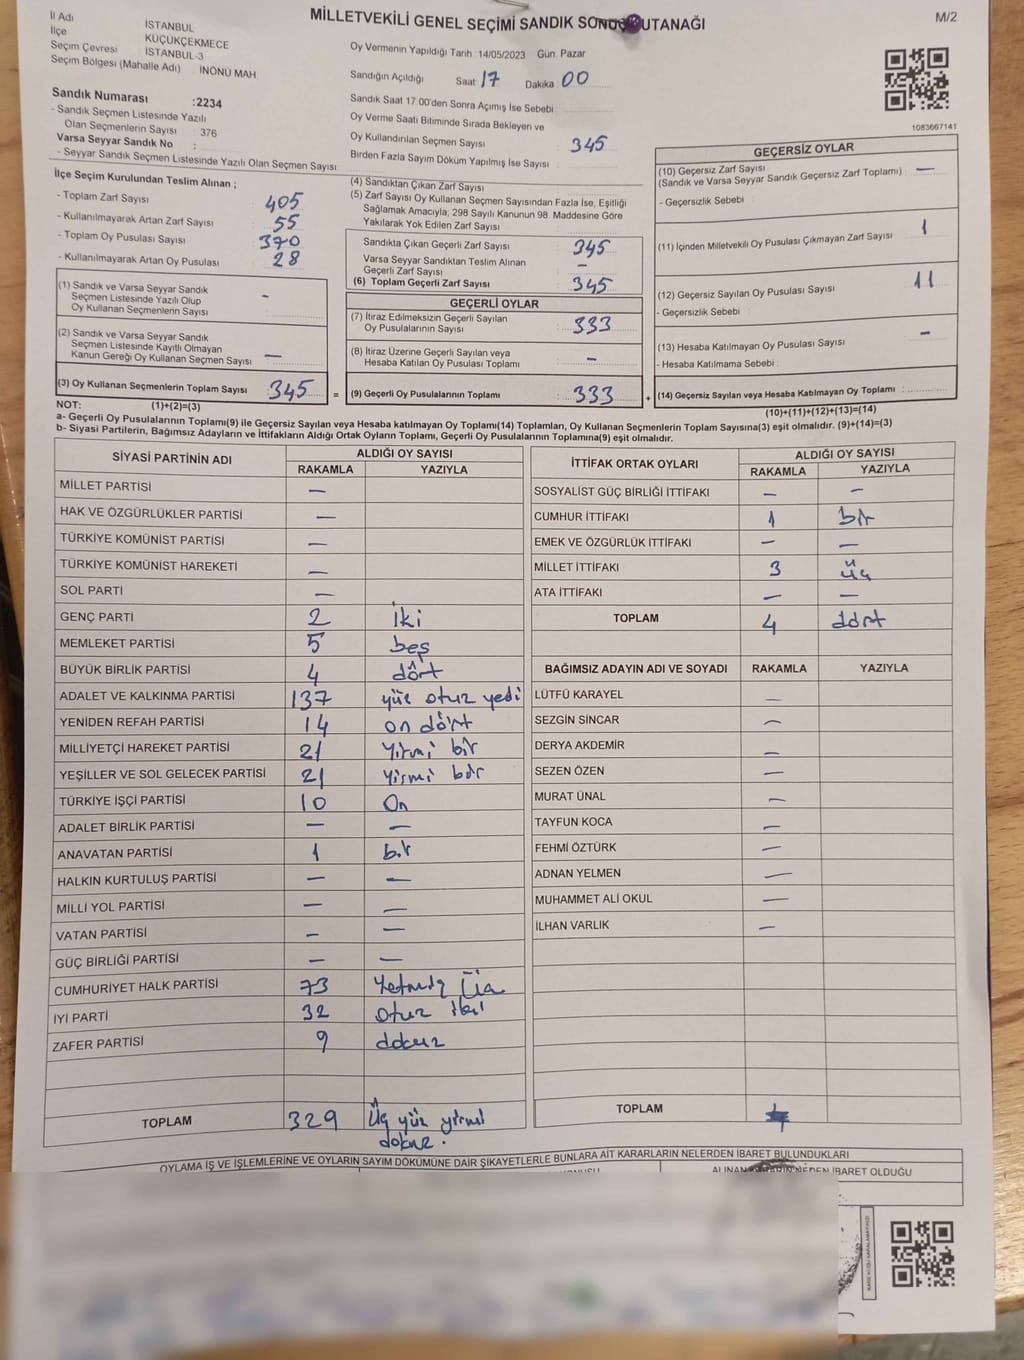 MİLLETVEKİLİ GENEL SEÇİMİ SANDIK SONUÇ TUTANAĞI
M/2
İl Adı İSTANBUL
İlçe KÜÇÜKÇEKMECE
Seçim Çevresi İSTANBUL-3
Seçim Bölgesi (Mahalle Adı) İNÖNÜ MAH.
Oy Vermenin Yapıldığı Tarih: 14/05/2023 Gün: Pazar
Sandığın Açıldığı Saat 17 Dakika 00
Sandık Numarası :2234
- Sandık Seçmen Listesinde Yazılı
Olan Seçmenlerin Sayısı 376
Varsa Seyyar Sandık No :
- Seyyar Sandık Seçmen Listesinde Yazılı Olan Seçmen Sayısı:
Sandık Saat 17:00'den Sonra Açımış İse Sebebi
Oy Verme Saati Bitiminde Sırada Bekleyen ve
Oy Kullandırılan Seçmen Sayısı 345
Birden Fazla Sayım Döküm Yapılmış İse Sayısı :
1083667141
İlçe Seçim Kurulundan Teslim Alınan ;
- Toplam Zarf Sayısı 405
- Kullanılmayarak Artan Zarf Sayısı 55
- Toplam Oy Pusulası Sayısı 370
- Kullanılmayarak Artan Oy Pusulası 28
(1) Sandık ve Varsa Seyyar Sandık
Seçmen Listesinde Yazılı Olup
Oy Kullanan Seçmenlerin Sayısı : -
(2) Sandık ve Varsa Seyyar Sandık
Seçmen Listesinde Kayıtlı Olmayan
Kanun Gereği Oy Kullanan Seçmen Sayısı : —
(3) Oy Kullanan Seçmenlerin Toplam Sayısı 345 =
(1)+(2)=(3)
(4) Sandıktan Çıkan Zarf Sayısı
(5) Zarf Sayısı Oy Kullanan Seçmen Sayısından Fazla İse, Eşitliği
Sağlamak Amacıyla, 298 Sayılı Kanunun 98 Maddesine Göre
Yakılarak Yok Edilen Zarf Sayısı :
Sandıkta Çıkan Geçerli Zarf Sayısı 345
Varsa Seyyar Sandıktan Teslim Alınan
Geçerli Zarf Sayısı —
(6) Toplam Geçerli Zarf Sayısı 345
GEÇERLİ OYLAR
(7) İtiraz Edilmeksizin Geçerli Sayılan
Oy Pusulalarının Sayısı 333
(8) İtiraz Üzerine Geçerli Sayılan veya
Hesaba Katılan Oy Pusulası Toplamı : —
(9) Geçerli Oy Pusulalarının Toplamı 333 +
GEÇERSİZ OYLAR
(10) Geçersiz Zarf Sayısı
(Sandık ve Varsa Seyyar Sandık Geçersiz Zarf Toplamı) : —
- Geçersizlik Sebebi :
(11) İçinden Milletvekili Oy Pusulası Çıkmayan Zarf Sayısı 1
(12) Geçersiz Sayılan Oy Pusulası Sayısı 11
- Geçersizlik Sebebi :
(13) Hesaba Katılmayan Oy Pusulası Sayısı —
- Hesaba Katılmama Sebebi :
(14) Geçersiz Sayılan veya Hesaba Katılmayan Oy Toplamı :
(10)+(11)+(12)+(13)=(14)
NOT:
a- Geçerli Oy Pusulalarının Toplamı(9) ile Geçersiz Sayılan veya Hesaba katılmayan Oy Toplamı(14) Toplamları, Oy Kullanan Seçmenlerin Toplam Sayısına(3) eşit olmalıdır. (9)+(14)=(3)
b- Siyasi Partilerin, Bağımsız Adayların ve İttifakların Aldığı Ortak Oyların Toplamı, Geçerli Oy Pusulalarının Toplamına(9) eşit olmalıdır.
SİYASİ PARTİNİN ADI ALDIĞI OY SAYISI
RAKAMLA YAZIYLA
MİLLET PARTİSİ —
HAK VE ÖZGÜRLÜKLER PARTİSİ —
TÜRKİYE KOMÜNİST PARTİSİ —
TÜRKİYE KOMÜNİST HAREKETİ —
SOL PARTİ —
GENÇ PARTİ 2 iki
MEMLEKET PARTİSİ 5 beş
BÜYÜK BİRLİK PARTİSİ 4 dört
ADALET VE KALKINMA PARTİSİ 137 yüz otuz yedi
YENİDEN REFAH PARTİSİ 14 on dört
MİLLİYETÇİ HAREKET PARTİSİ 21 Yirmi bir
YEŞİLLER VE SOL GELECEK PARTİSİ 21 Yirmi bir
TÜRKİYE İŞÇİ PARTİSİ 10 On
ADALET BİRLİK PARTİSİ — —
ANAVATAN PARTİSİ 1 bir
HALKIN KURTULUŞ PARTİSİ — —
MİLLİ YOL PARTİSİ — —
VATAN PARTİSİ — —
GÜÇ BİRLİĞİ PARTİSİ — —
CUMHURİYET HALK PARTİSİ 73 Yetmiş Üç
İYİ PARTİ 32 otuz iki
ZAFER PARTİSİ 9 dokuz
TOPLAM 329 Üç yüz yirmi
dokuz.
İTTİFAK ORTAK OYLARI ALDIĞI OY SAYISI
RAKAMLA YAZIYLA
SOSYALİST GÜÇ BİRLİĞİ İTTİFAKI — —
CUMHUR İTTİFAKI 1 bir
EMEK VE ÖZGÜRLÜK İTTİFAKI — —
MİLLET İTTİFAKI 3 üç
ATA İTTİFAKI — —
TOPLAM 4 dört
BAĞIMSIZ ADAYIN ADI VE SOYADI RAKAMLA YAZIYLA
LÜTFÜ KARAYEL —
SEZGİN SİNCAR —
DERYA AKDEMİR —
SEZEN ÖZEN —
MURAT ÜNAL —
TAYFUN KOCA —
FEHMİ ÖZTÜRK —
ADNAN YELMEN —
MUHAMMET ALİ OKUL —
İLHAN VARLIK —
TOPLAM
OYLAMA İŞ VE İŞLEMLERİNE VE OYLARIN SAYIM DÖKÜMÜNE DAİR ŞİKAYETLERLE BUNLARA AİT KARARLARIN NELERDEN İBARET BULUNDUKLARI
NEDEN İBARET OLDUĞU